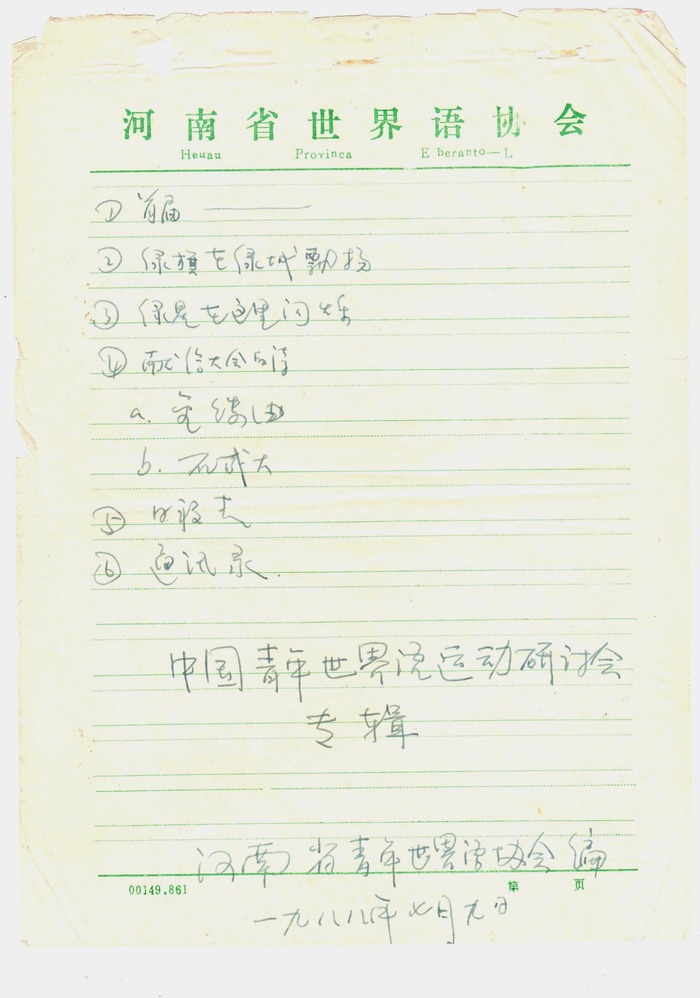 河南省世界语协会
Heuau Provinca E beranto—L
① 首届 ———
② 绿旗在绿城飘扬
③ 绿星在这里闪烁
④ 献给大会的诗
a.
b. 石成太
⑤ 日程表
⑥ 通讯录.
中国青年世界语运动研讨会
专辑
河南省青年世界语协会 编
00149.861 第 页
一九八八年七月九日